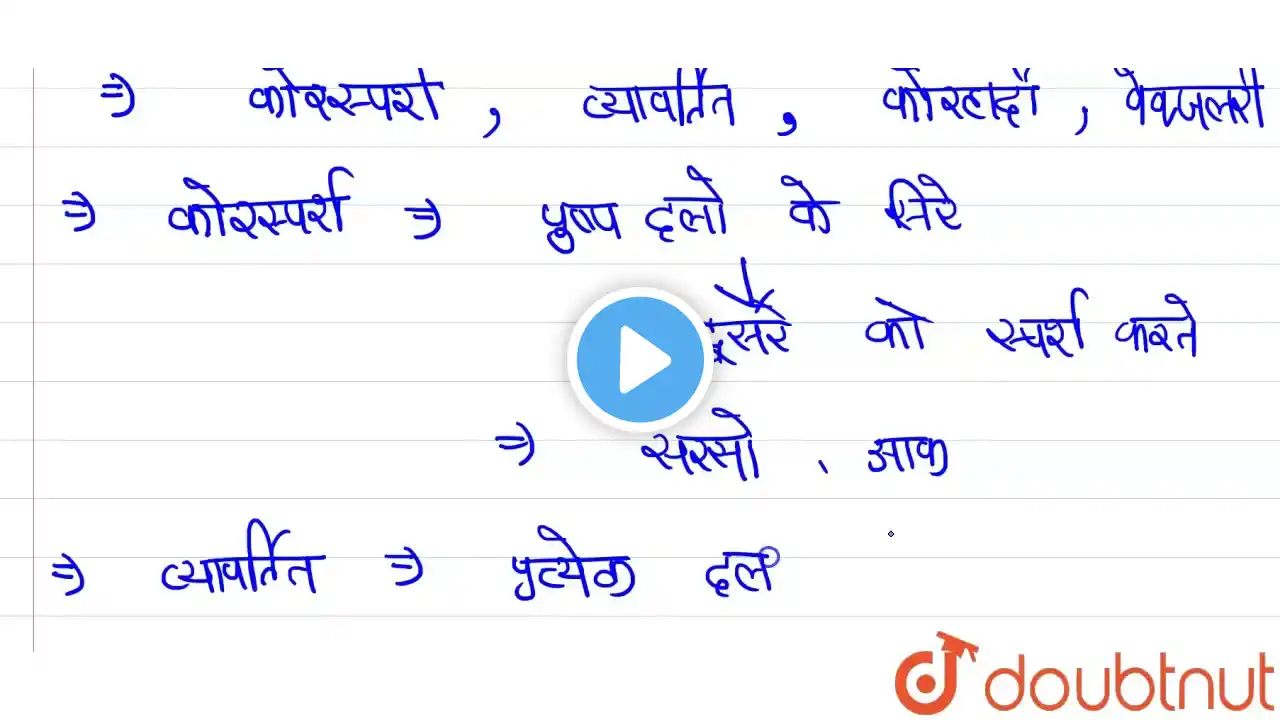 ⇒ कोरस्पर्शी, व्यावर्तित, कोरछादी, वेक्जलरी
⇒ कोरस्पर्शी ⇒ पुष्प दलो के सिरे
दूसरे को स्पर्श करते
⇒ सरसो, आक
⇒ व्यावर्तित ⇒ प्रत्येक दल
doubtnut